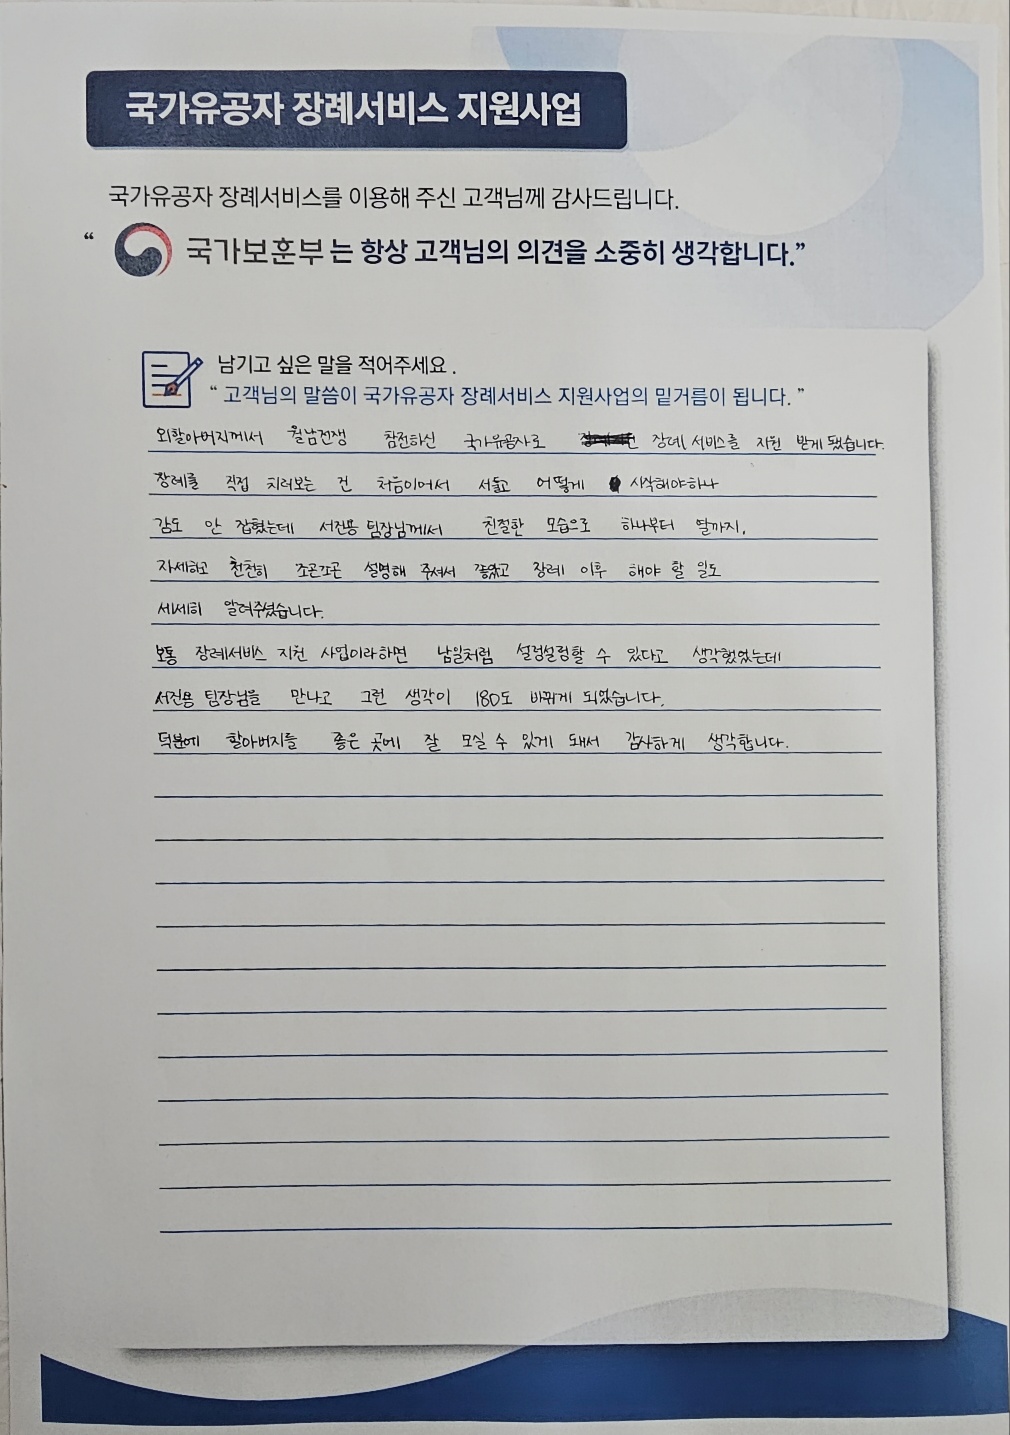 국가유공자 장례서비스 지원사업
국가유공자 장례서비스를 이용해 주신 고객님께 감사드립니다.
“ 국가보훈부 는 항상 고객님의 의견을 소중히 생각합니다.”
남기고 싶은 말을 적어주세요 .
“ 고객님의 말씀이 국가유공자 장례서비스 지원사업의 밑거름이 됩니다. ”
외할아버지께서 월남전쟁 참전하신 국가유공자로 장례 서비스를 지원 받게 됐습니다.
장례를 직접 치러보는 건 처음이어서 서툴고 어떻게 시작해야하나
감도 안 잡혔는데 서진용 팀장님께서 친절한 모습으로 하나부터 열까지,
자세하고 천천히 조곤조곤 설명해 주셔서 좋았고 장례 이후 해야 할 일도
세세히 알려주셨습니다.
보통 장례서비스 지원 사업이라하면 남일처럼 설렁설렁할 수 있다고 생각했었는데
서진용 팀장님을 만나고 그런 생각이 180도 바뀌게 되었습니다.
덕분에 할아버지를 좋은 곳에 잘 모실 수 있게 돼서 감사하게 생각합니다.